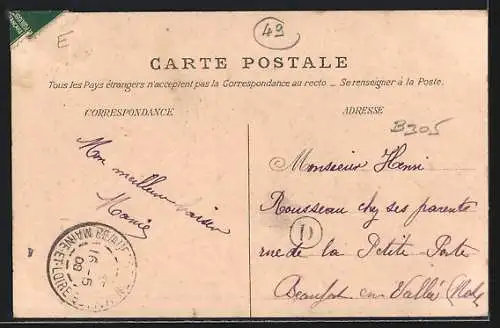 E
49
CARTE POSTALE
Tous les Pays étrangers n'acceptent pas la Correspondance au recto _ Se renseigner à la Poste.
CORRESPONDANCE
ADRESSE
B305
Mon meilleur baiser
Marie
Monsieur Henri
Rousseau chez ses parents
rue de la Petite Porte
Beaufort en Vallée
D
16-5
09
MAINE-ET-LOIRE